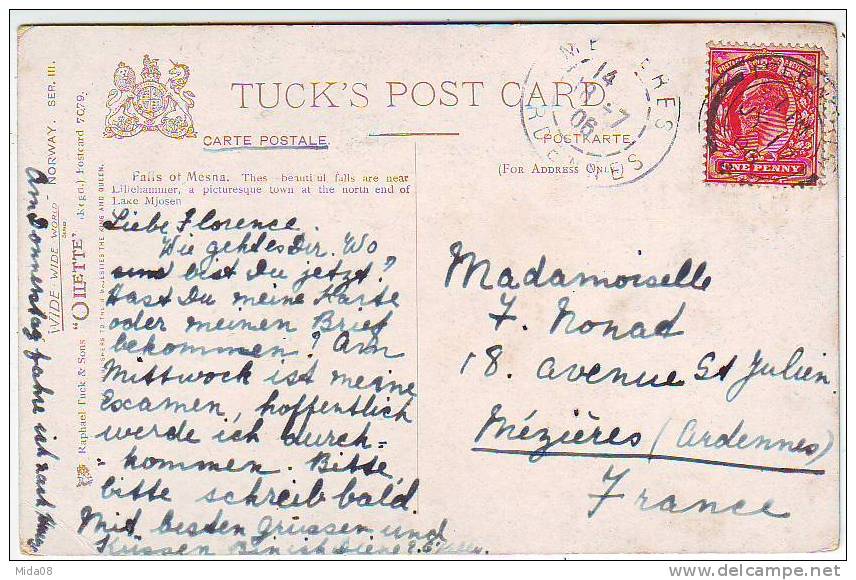 TUCK'S POST CARD
CARTE POSTALE.
POSTKARTE
(FOR ADDRESS ONLY)
Falls of Mesna. Thes beautiful falls are near
Lillehammer, a picturesque town at the north end of
Lake Mjosen
Liebe Florence.
Wie geht es Dir. Wo
bist Du jetzt?
Hast Du meine Karte
oder meinen Brief
bekommen? Am
Mittwoch ist meine
Examen, hoffentlich
werde ich durch-
kommen. Bitte,
bitte schreib bald.
Mit besten grüssen und
Küssen Bin ich Deine
Am Donnerstag fahre ich nach
WIDE-WIDE-WORLD NORWAY. SER. III.
Raphael Tuck & Sons "OILETTE" (Regd.) Postcard 7079.
Madamoiselle
F. Nonad
18. avenue St Julien.
Mézières (Ardennes)
France
14
-7
06
ARDENNES
ONE PENNY
Mida08
delcampe.net